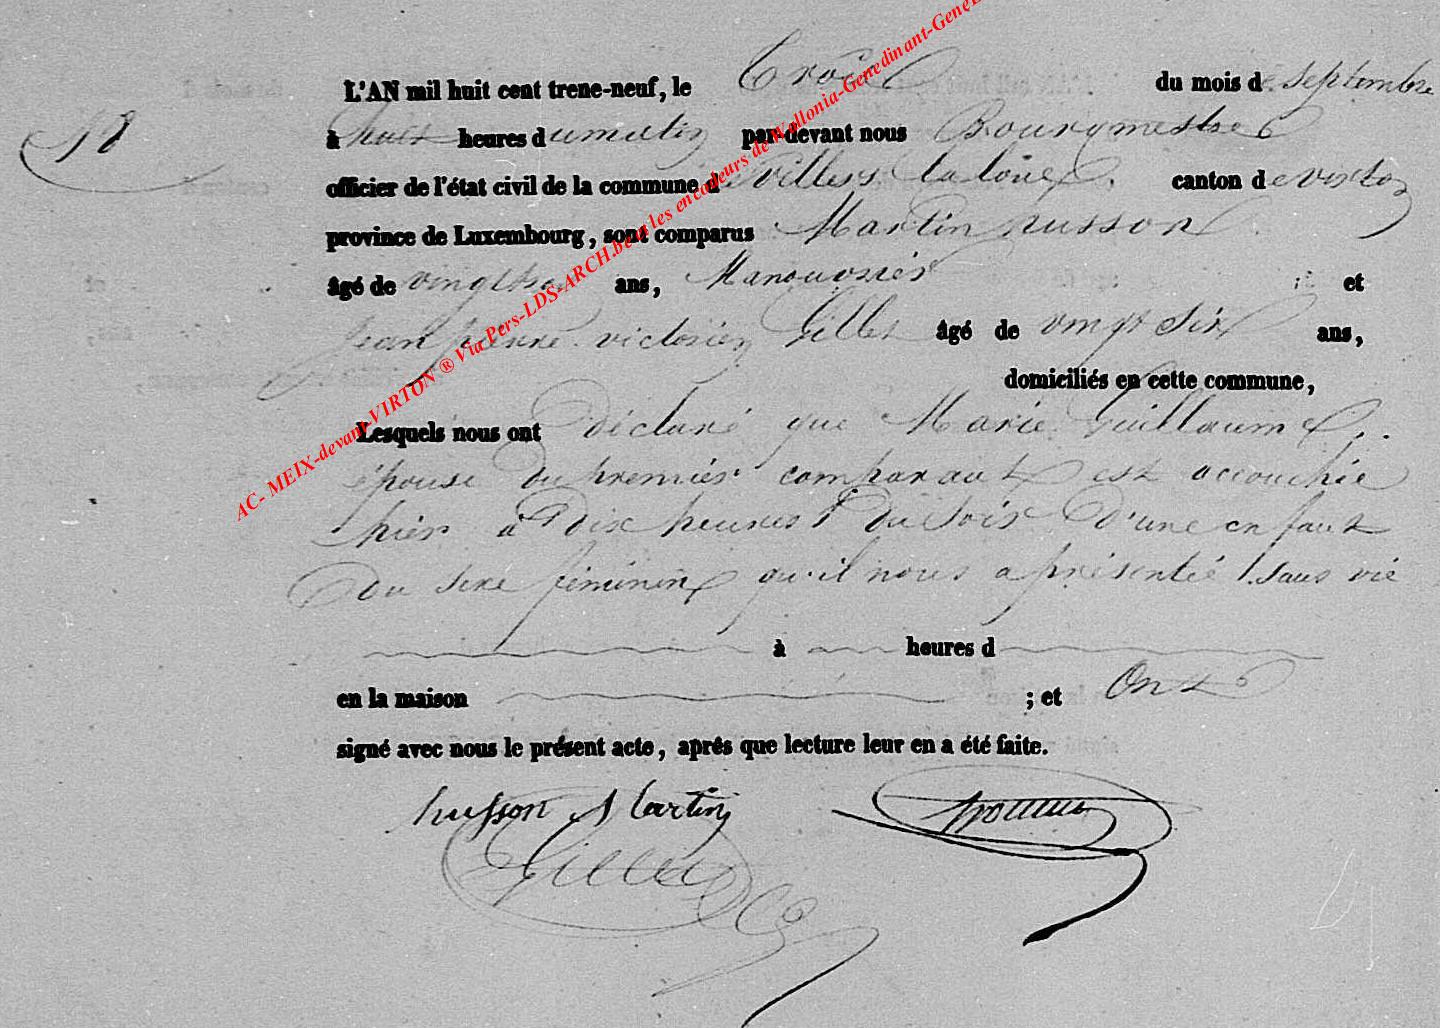 L'AN mil huit cent trene-neuf, le Trois du mois de septembre
18
à huit heures dumatin par-devant nous Bourgmestre
officier de l'état civil de la commune de villers la loue. canton de virton
province de Luxembourg, sont comparus Martin husson
âgé de ans, Manouvrier et
jean pierre victorien Gillet âgé de vingt Six ans,
domiciliés en cette commune,
Lesquels nous ont déclaré que Marie Guillaume,
épouse du premier comparant est accouchée
hier à Dix heures Du Soir D'une enfant
Du sexe féminin qu'il nous a présentée sans vie
à heures d
en la maison ; et Ont
signé avec nous le présent acte, aprés que lecture leur en a été faite.
husson Martin
Gillet
AC- MEIX-devant-VIRTON ® Via Pers-LDS-ARCH.be et les encodeurs de Wallonia-Genedinant-GeneL